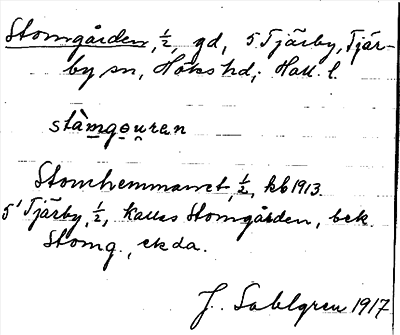 Stomgården, ½, gd, 5 Tjärby, Tjär-
by sn, Höks hd, Hall. l.
stàmgo̱u̯ren
Stomhemmanet, ½, kb 1913.
5¹ Tjärby, ½, kallas Stomgården, bek.
Stomg., ekda.
J. Sahlgren 1917